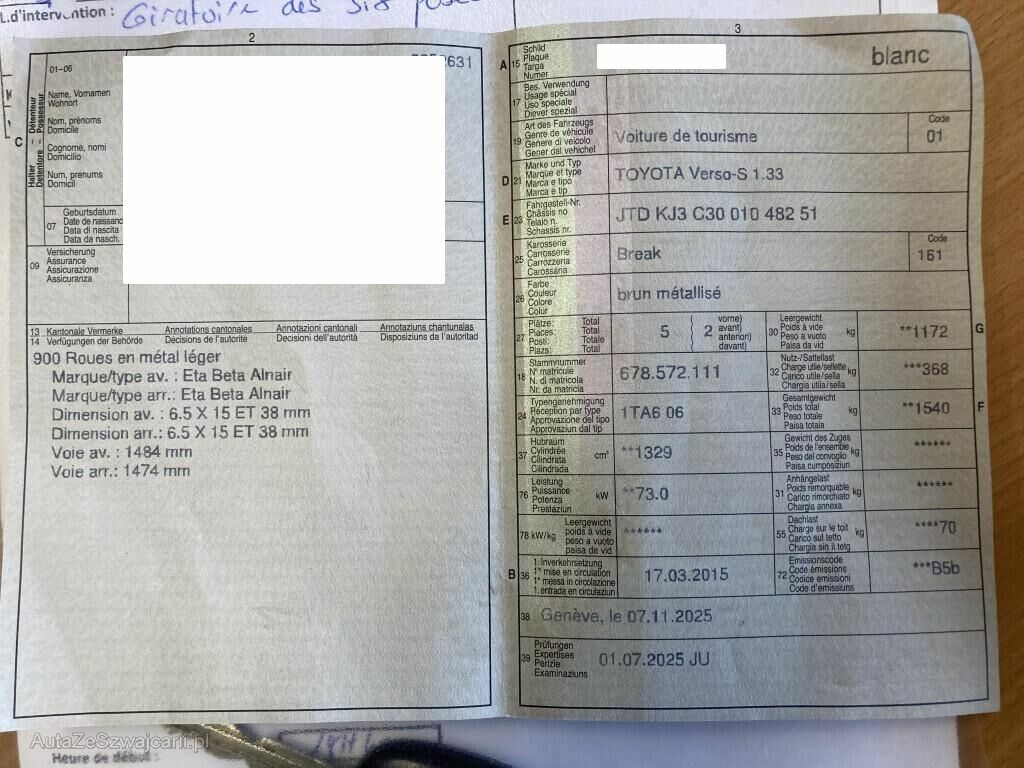 L.d'intervention : Giratoire des six
2
631
01-06
Name, Vornamen
Wohnort
Nom, prénoms
Domicile
Cognome, nomi
Domicilio
Num, prenums
Domicil
C
Halter Détenteur
Detentore Possessur
07
Geburtsdatum
Date de naissanc
Data di nascita
Data da nasch.
09
Versicherung
Assurance
Assicurazione
Assicuranza
13 Kantonale Vermerke Annotations cantonales Annotazioni cantonali Annotaziuns chantunalas
14 Verfügungen der Behörde Décisions de l'autorité Decisioni dell'autorità Disposiziuns da l'autoritad
900 Roues en métal léger
Marque/type av. : Eta Beta Alnair
Marque/type arr.: Eta Beta Alnair
Dimension av. : 6.5 X 15 ET 38 mm
Dimension arr.: 6.5 X 15 ET 38 mm
Voie av. : 1484 mm
Voie arr.: 1474 mm
3
A 15
Schild
Plaque
Targa
Numer
blanc
17
Bes. Verwendung
Usage spécial
Uso speciale
Diever spezial
19
Art des Fahrzeugs
Genre de véhicule
Genere di veicolo
Gener dal vehichel
Voiture de tourisme
Code
01
D 21
Marke und Typ
Marque et type
Marca e tipo
Marca e tip
TOYOTA Verso-S 1.33
E 23
Fahrgestell-Nr.
Châssis no
Telaio n.
Schassis nr.
JTD KJ3 C30 010 482 51
25
Karosserie
Carrosserie
Carrozzeria
Carossaria
Break
Code
161
26
Farbe
Couleur
Colore
Colur
brun métallisé
27
Plätze: Total
Places: Total
Posti: Totale
Plazs: Total
5
2
vorne)
avant)
anteriori)
davant)
30
Leergewicht
Poids à vide
Peso a vuoto
Paisa da vid
kg
**1172
G
18
Stammnummer
N° matricule
N. di matricola
Nr. da matricla
678.572.111
32
Nutz-/Sattellast
Charge utile/sellette
Carico utile/sella
Chargia utila/sella
kg
***368
24
Typengenehmigung
Réception par type
Approvazione del tipo
Approvaziun dal tip
1TA6 06
33
Gesamtgewicht
Poids total
Peso totale
Paisa totala
kg
**1540
F
37
Hubraum
Cylindrée
Cilindrata
Cilindrada
cm³
**1329
35
Gewicht des Zuges
Poids de l'ensemble
Peso del convoglio
Paisa cumposiziun
kg
******
76
Leistung
Puissance
Potenza
Prestaziun
kW
**73.0
31
Anhängelast
Poids remorquable
Carico rimorchiato
Chargia annexa
kg
******
78 kW/kg
Leergewicht
poids à vide
peso a vuoto
paisa da vid
******
55
Dachlast
Charge sur le toit
Carico sul tetto
Chargia sin il tetg
kg
****70
B 36
1. Inverkehrsetzung
1re mise en circulation
1a messa in circolazione
1. entrada en circulaziun
17.03.2015
72
Emissionscode
Code émissions
Codice emissioni
Code d'emissiuns
***B5b
38
Genève, le 07.11.2025
39
Prüfungen
Expertises
Perizie
Examinaziuns
01.07.2025 JU
AutaZeSzwajcarii.pl
Heure de début :